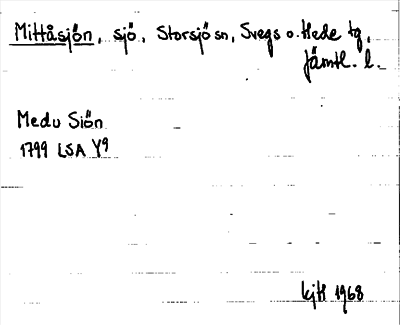 Mittåsjön, sjö, Storsjö sn, Svegs o. Hede tg,
Jämtl. l.
Medu Siön
1799 LSA Y9
kjtl 1968